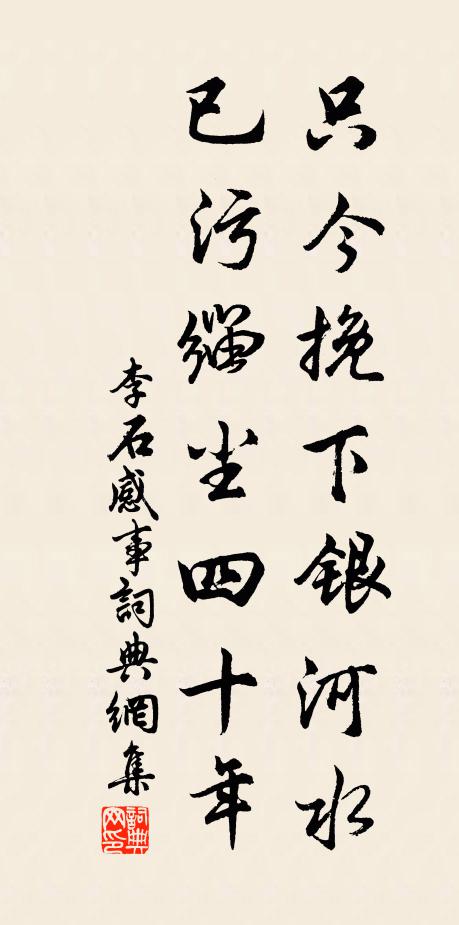 只今挽下銀河水
已污緇尘四十年
李石感事詞典網集
詞典网印